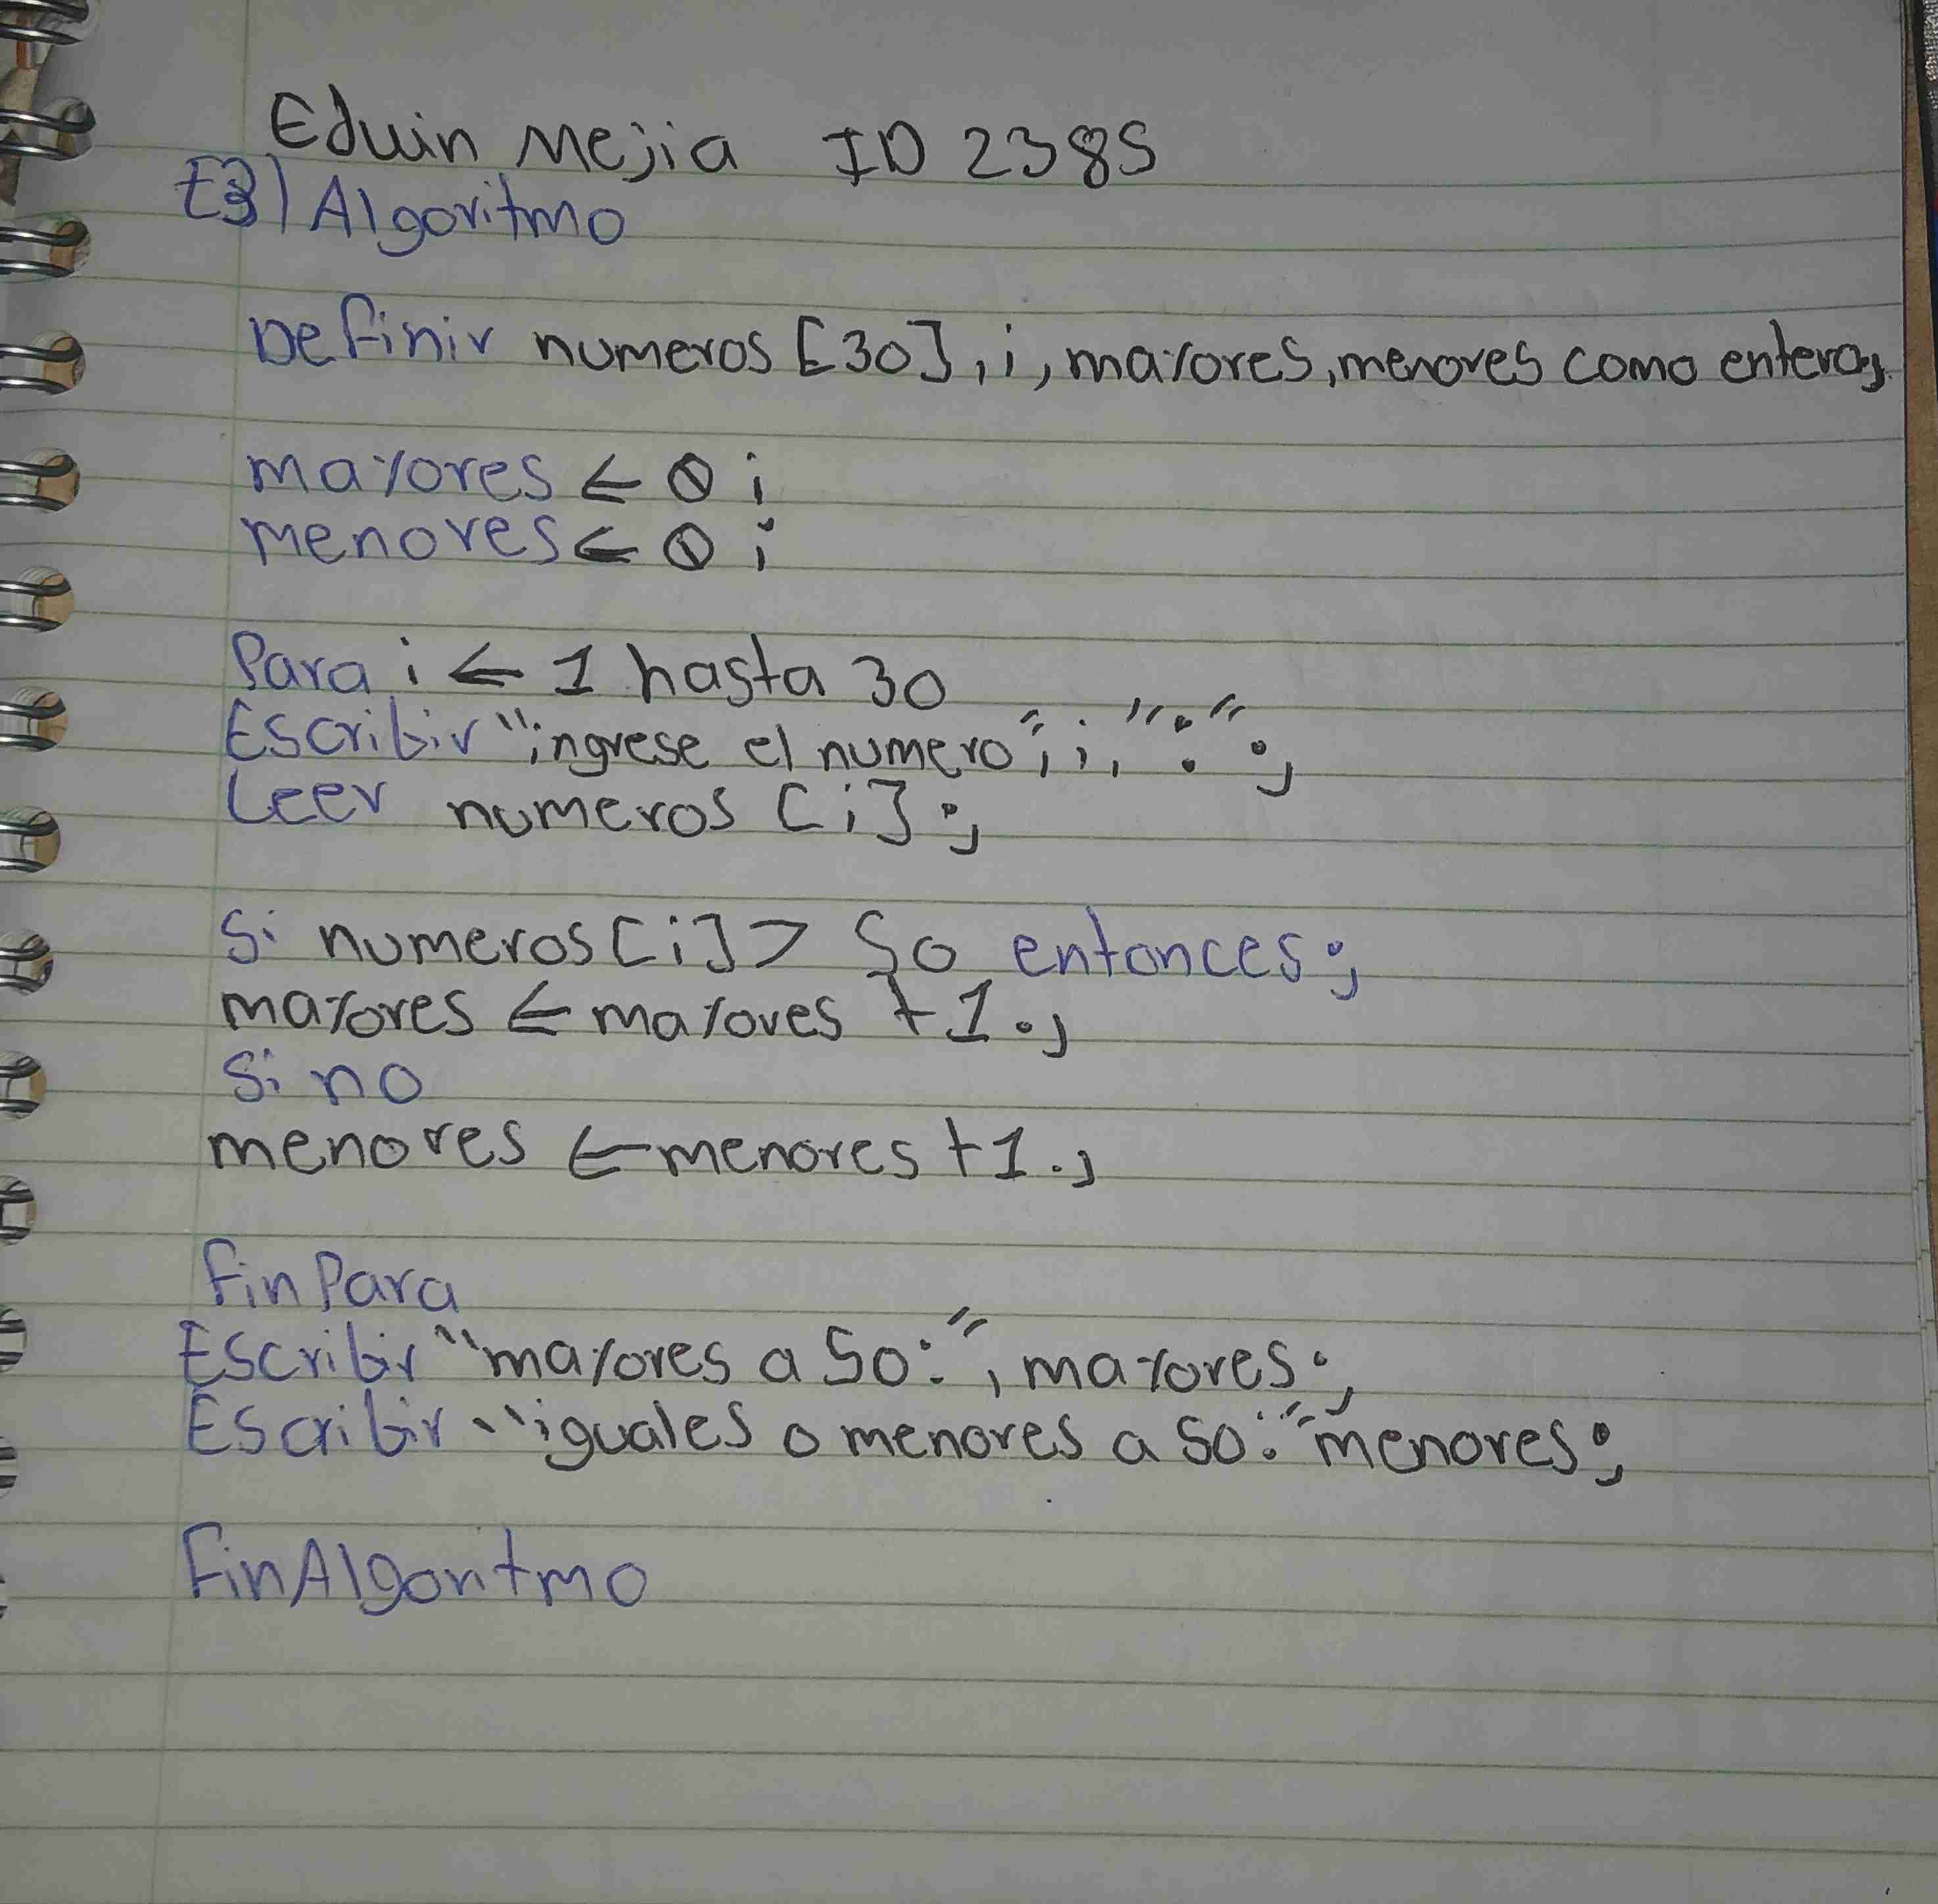 Eduin Mejia ID 2385
E3) Algoritmo
Definir numeros [30], i, mayores, menores como entero;
mayores ← 0 ;
menores ← 0 ;
Para i ← 1 hasta 30
Escribir "ingrese el numero", i, ":" ;
Leer numeros [i] ;
Si numeros [i] > 50 entonces ;
mayores ← mayores + 1 ;
Si no
menores ← menores + 1 ;
Fin Para
Escribir "mayores a 50:", mayores ;
Escribir "iguales o menores a 50:" menores ;
FinAlgoritmo